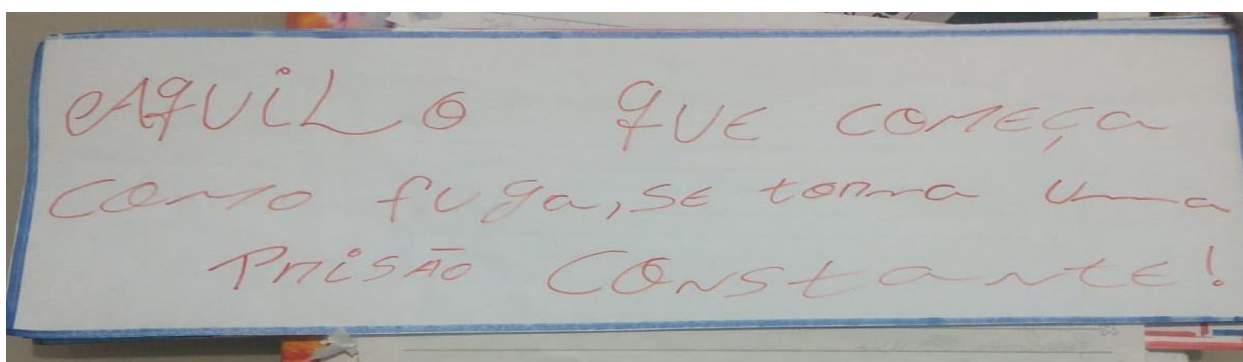 AQUILO QUE COMEÇA
COMO fuga, SE torna uma
PRISÃO CONStANtE!